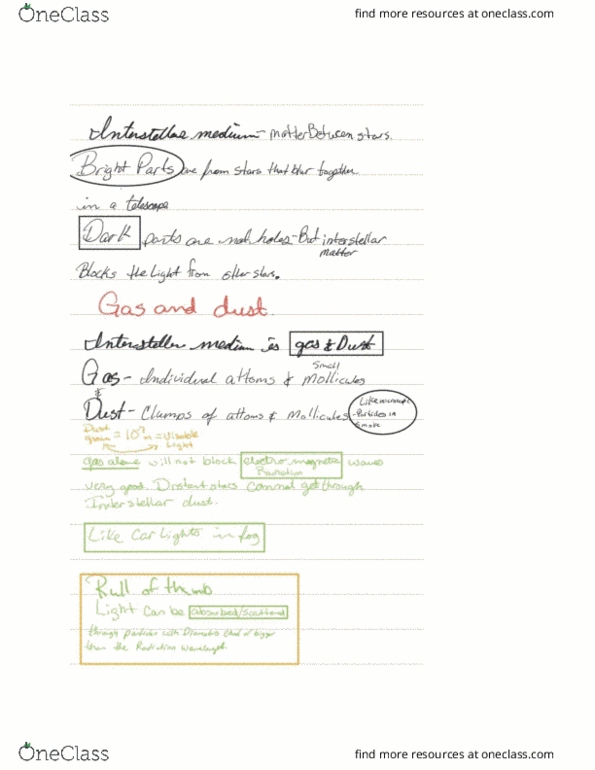 OneClass
find more resources at oneclass.com
Interstellar medium- matter Between stars.
Bright Parts are from stars that blur together
in a telescope
Dark parts are not holes-But interstellar
matter
Blocks the Light from other stars.
Gas and dust.
Interstellar medium is gas & Dust
Small
Gas- Individual attoms & Mollicules
&
Dust- Clumps of attoms & Mollicules
Like
Particles in
Smoke
Dust
= visable
Light
gas alone will not block electro-magnetic waves
Radiation
very good. Distant stars cannot get through
Interstellar dust.
Like Car Lights in fog
Rull of thumb
Light Can be absorbed/scattered
through particles with
than the Radiation wavelength.
OneClass
find more resources at oneclass.com